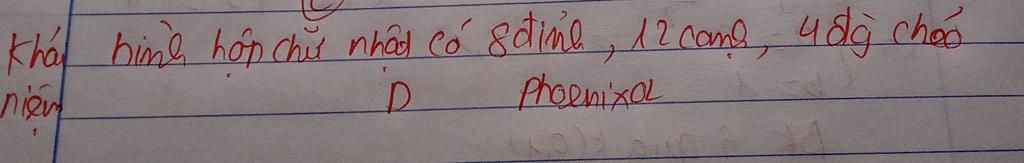 Khái hình hộp chữ nhật có 8 đỉnh, 12 cạnh, 4 đg chéo
niệm D Phoenixol